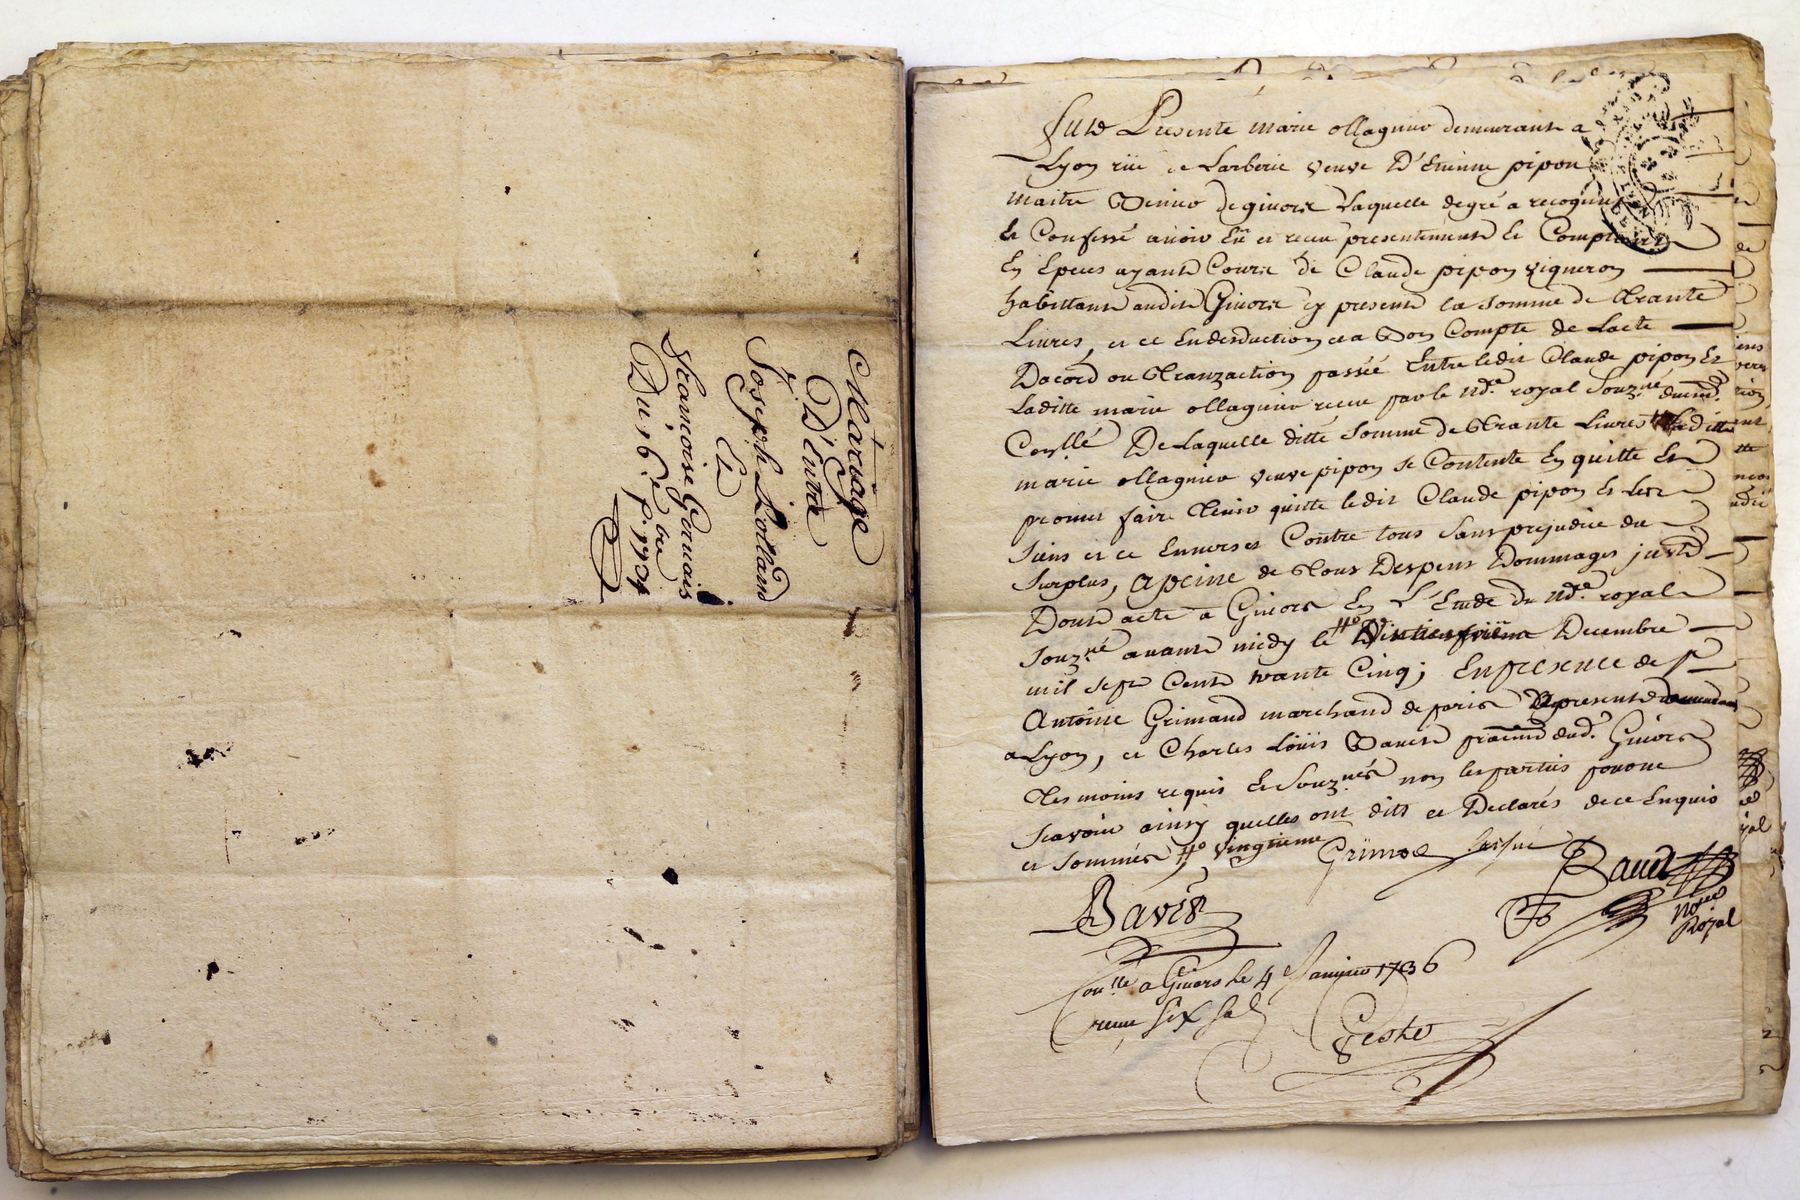 Mariage
D'Entre
Joseph Lolland
Et
francoise Geruais
Du 16e
1734
Fute Presente marie ollagnier demeurante a
Lyon rüe de Larberie veuve D'Etienne pipon
maitre de giuors Laquelle de gré a recognu
Et Confessé auoir Eü et receu presentement Et Comptant
En Epeces ayante Cours de Claude pipon vigneron
habittant audit Giuors cy present la somme de Trante
Liures, et ce En desduction et a Bon Compte de Lacte
Dacord ou Tranzaction passée Entre ledit Claude pipon Et
Laditte marie ollagnier receu par le Nre royal Souzné
Con.llé De Laquelle ditte Somme de Trante Liures Laditte
marie ollagnier veuve pipon se Contente En quitte Et
promet faire Tenir quitte ledit Claude pipon Et Les
Siens et ce Enuers et Contre tous Sans prejudice du
Surplus, A peine de Tous Despens Dommages
Dont acte a Giuors En L'Etude du Nre royal
Souzné auant midy le Decembre
mil sept Cent trante Cinq; En presence de sr
Antoine Grimaud marchand de paris a present
a Lyon, et Charles Loüis Bauet dud. Giuors
Tesmoins requis Et Souznés non les parties pour ne
Scavoir ainsy quelles ont dit et Declarés de ce Enquis
et Sommés vingtieme
Bauet
Bavet
No.re
Royal
Con.llé a Giuors le 4 Januier 1736
receu Six sols